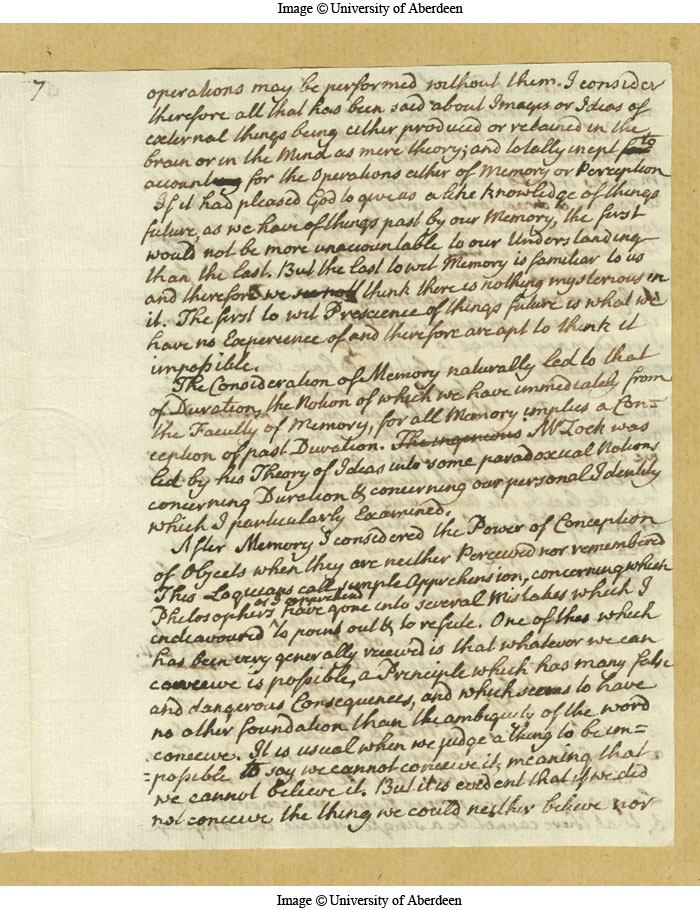 Image © University of Aberdeen
7
operations may be performed without them. I consider
therefore all that has been said about Images or Ideas of
external things being either produced or retained in the
brain or in the Mind as mere theory; and totally inept to
account for the Operations either of Memory or Perception
If it had pleased God to give us a like knowledge of things
future, as we have of things past by our Memory, the first
would not be more unaccountable to our Understanding
than the last. But the last to wit Memory is familiar to us
and therefore we see not think there is nothing mysterious in
it. The first to wit Prescience of things future is what we
have no Experience of and therefore are apt to think it
impossible.
The Consideration of Memory naturally led to that
of Duration, the Notion of which we have immediately from
the Faculty of Memory, for all Memory implies a Con=
ception of past Duration. The ingenious Mr Lock was
led by his Theory of Ideas into some paradoxical Notions
concerning Duration & concerning our personal Identity
which I particularly Examined.
After Memory I considered the Power of Conception
of Objects when they are neither Perceived nor remembered
This Logicians call simple Apprehension, concerning which
Philosophers as I apprehend have gone into several Mistakes which I
endeavoured to point out & to refute. One of thes which
has been very generally received is that whatever we can
conceive is possible, a Principle which has many false
and dangerous Consequences, and which seems to have
no other foundation than the ambiguity of the word
conceive. It is usual when we judge a thing to be im=
=possible to say we cannot conceive it, meaning that
we cannot believe it. But it is evident that if we did
not conceive the thing we could neither believe nor
Image © University of Aberdeen